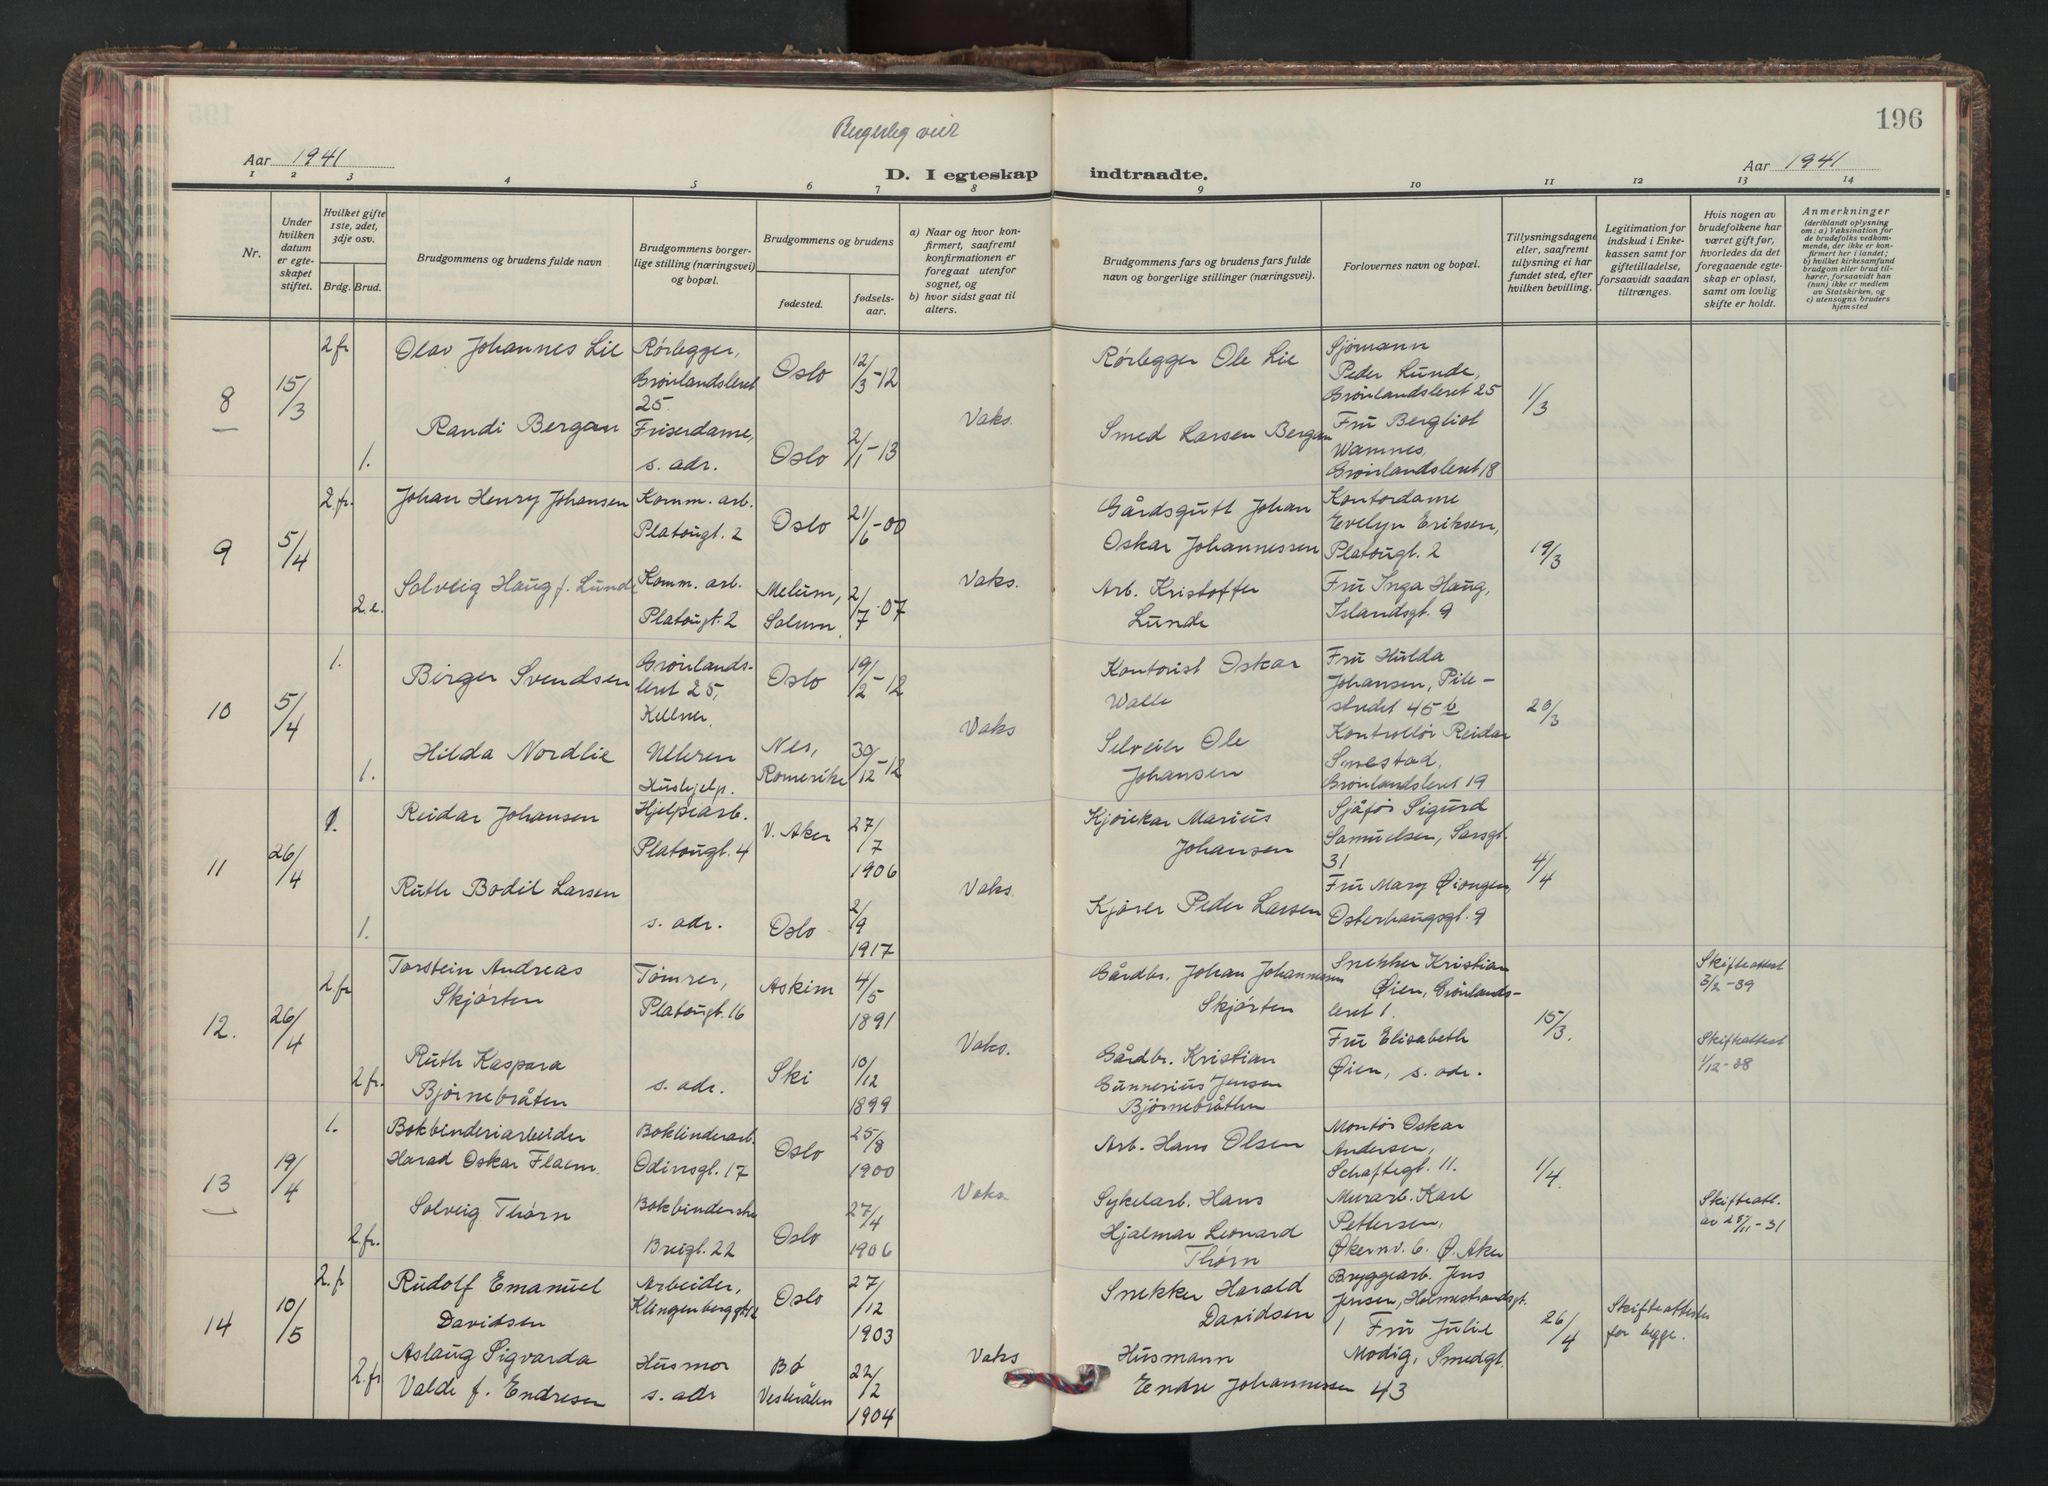 196
Borgerleg viet
Aar 1941
Aar 1941
D. I egteskap
indtraadte.
1 2 3 4 5 6 7 8
9 10 11 12 13 14
Nr.
Under hvilken datum er egteskapet stiftet.
Hvilket gifte 1ste, 2det, 3dje osv.
Brdg. Brud.
Brudgommens og brudens fulde navn
Brudgommens borgerlige stilling (næringsvei) og bopæl.
Brudgommens og brudens
fødested.
fødselsaar.
a) Naar og hvor konfirmert, saafremt konfirmationen er foregaat utenfor sognet, og
b) hvor sidst gaat til alters.
Brudgommens fars og brudens fars fulde navn og borgerlige stillinger (næringsvei).
Forlovernes navn og bopæl.
Tillysningsdagene eller, saafremt tillysning ei har fundet sted, efter hvilken bevilling.
Legitimation for indskud i Enkekassen samt for giftetilladelse, forsaavidt saadan tiltrænges.
Hvis nogen av brudefolkene har været gift før, hvorledes da det foregaaende egteskap er opløst, samt om lovlig skifte er holdt.
Anmerkninger
(deriblandt oplysning om: a) Vaksination for de brudefolks vedkommende, der ikke er konfirmert her i landet;
b) hvilket kirkesamfund brudgom eller brud tilhører, forsaavidt han (hun) ikke er medlem av Statskirken, og
c) utensogns bruders hjemsted
8
15/3
2 fr
Olav Johannes Lie
Rørlegger,
Grønlandsleret
25.
Oslo
12/3-12
Rørlegger Ole Lie
Sjømann
Peder Lunde,
Grønlandsleret 25
1/3
1.
Randi Bergan
Friserdame,
s. adr.
Oslo
2/1-13
Vaks.
Smed Larsen Bergan
Fru Bergliot
Wamnes,
Grønlandsleret 18
9
5/4
2. fr.
Johan Henry Johansen
Komm. arb.
Platougt. 2
Oslo
21/6-00
Gårdsgutt Johan
Oskar Johannessen
Kontordame
Evelyn Eriksen,
Platougt. 2
19/3
2. e.
Solveig Haug f. Lunde
Komm. arb.
Platougt. 2
Melum,
Solum.
2/7-07
Vaks.
Arb. Kristoffer
Lunde
Fru Inga Haug,
Islandsgt. 9
10
5/4
1.
Birger Svendsen
Grønlands-
leret 25,
Kellner.
Oslo
19/2-12
Kontorist Oskar
Walle
Fru Hulda
Johansen, Pile-
stredet 45 b
20/3
1.
Hilda Nordlie
Hushjelp.
Nes,
Romerike
30/12-12
Vaks
Selveier Ole
Johansen
Kontrollør Reidar
Smestad,
Grønlandsleret 19
11
26/4
1.
Reidar Johansen
Hjelpearb.
Platougt. 4
V. Aker
27/7
1906
Kjørekar Marius
Johansen
Sjåfør Sigurd
Samuelsen, Sarsgt.
31
4/4
1.
Ruth Bodil Larsen
s. adr.
Oslo
2/9
1917
Vaks.
Kjører Peder Larsen
Fru Mary Øiongen,
Osterhaugsgt. 9
12.
26/4
2. fr
Torstein Andreas
Skjørten
Tømrer,
Platougt. 16
Askim
4/5
1891
Gårdbr. Johan Johannessen
Skjørten
Snekker Kristian
Øien, Grønlands-
leret 1.
15/3.
Skifteattest
3/2-39
2. fr.
Ruth Kaspara
Bjørnebråten
s. adr.
Ski
10/12
1899
Vaks.
Gårdbr. Kristian
Gunnerius Jensen
Bjørnebråthen
Fru Elisabeth
Øien, s. adr.
Skifteattest
1/12-38
13
19/4
1.
Bokbinderiarbeider
Harad Oskar Flaem.
Bokbinderarb.
Odinsgt. 17
Oslo
25/8
1900
Arb. Hans Olsen
Montør Oskar
Andersen,
Schaftegt. 11.
1/4.
2. fr.
Solveig Thørn
Bokbinderske
Breigt. 22
Oslo
27/4
1906
Vaks.
Sykelarb. Hans
Hjalmar Leonard
Thørn
Murarb. Karl
Pettersen,
Økernv. 6. Ø. Aker
Skifteatt.
av 25/11-31
14
10/5
2. fr
Rudolf Emanuel
Davidsen
Arbeider,
Klingenberggt. 12
Oslo
27/12
1903
Snekker Harald
Davidsen
Bryggearb. Jens
Jensen, Holmestrandsgt.
1
26/4
Skifteattester
for begge.
2. fr
Aslaug Sigvarda
Valde f. Endresen
Husmor
s. adr
Bø
Vesterålen
22/2
1904
Vaks
Husmann
Endre Johannessen
Fru Julie
Modig, Smedgt.
43